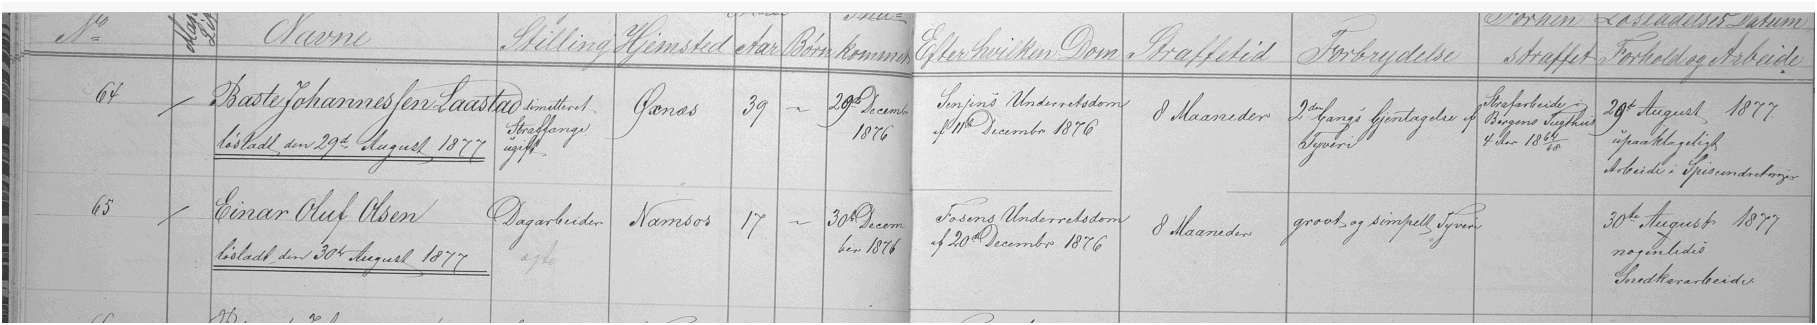 No Navne Stilling Hjemsted Aar Børn kommet Efter hvilken Dom Straffetid Forbrydelse Forhen straffet Løsladelses Datum
Forhold og Arbeide
64 Baste Johannessen Laastad dimitteret Øxnæs 39 29de Decembr Senjens Underretsdom 8 Maaneder 2den Gangs Gjentagelse af Strafarbeide i 29de August 1877
løsladt den 29de August 1877 Straffange 1876 af 11te Decembr 1876 Tyveri Bergens Tugthus upaaklageligt
ugift 4 Aar 1864/68 Arbeide i Spiseindretningen
65 Einar Oluf Olsen Dagarbeider Namsos 17 30te Decem Fosens Underretsdom 8 Maaneder grovt og simpelt Tyveri 30te August 1877
løsladt den 30te August 1877 ber 1876 af 20de Decembr 1876 nogenledes
Snedkerarbeide